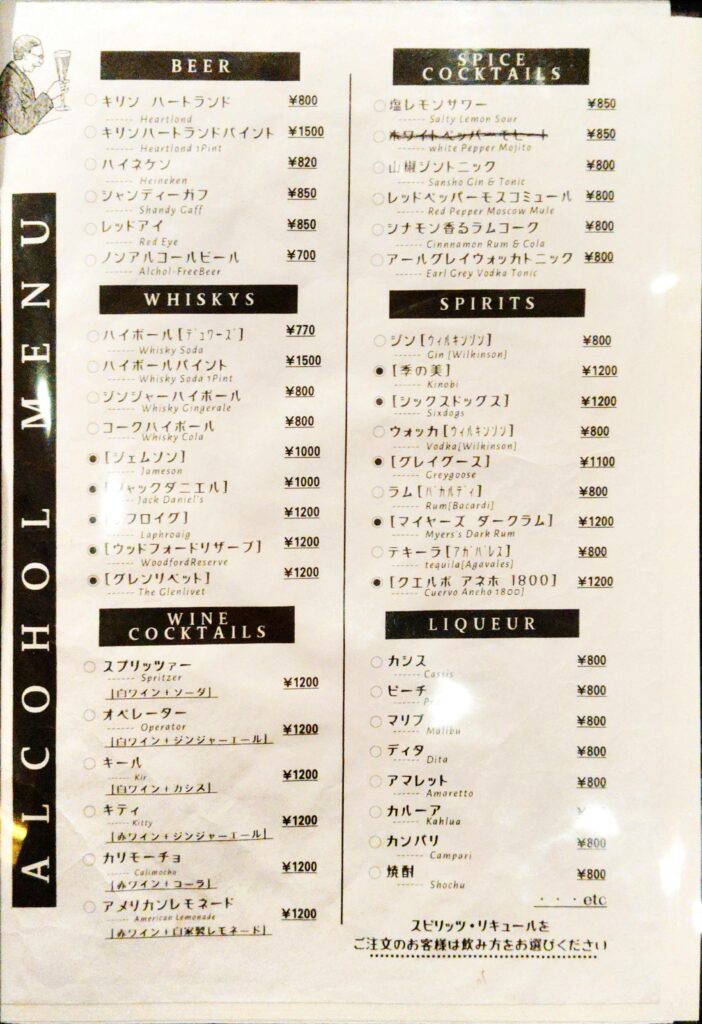 ALCOHOL MENU
BEER
キリン ハートランド ¥800
------ Heartlond
キリンハートランドパイント ¥1500
------ Heartlond 1Pint
ハイネケン ¥820
------ Heineken
シャンディーガフ ¥850
------ Shandy Gaff
レッドアイ ¥850
------ Red Eye
ノンアルコールビール ¥700
------ Alchol-FreeBeer
WHISKYS
ハイボール[デュワーズ] ¥770
------ Whisky Soda
ハイボールパイント ¥1500
------ Whisky Soda 1Pint
ジンジャーハイボール ¥800
------ Whisky Gingerale
コークハイボール ¥800
------ Whisky Cola
[ジェムソン] ¥1000
------ Jameson
[ジャックダニエル] ¥1000
------ Jack Daniel's
フロイグ] ¥1200
------ Laphroaig
[ウッドフォードリザーブ] ¥1200
------ WoodfordReserve
[グレンリベット] ¥1200
------ The Glenlivet
WINE
COCKTAILS
スプリッツァー
------ Spritzer ¥1200
[白ワイン+ソーダ]
オペレーター
------ Operator ¥1200
[白ワイン+ジンジャーエール]
キール
------ Kir ¥1200
[白ワイン+カシス]
キティ
------ Kitty ¥1200
[赤ワイン+ジンジャーエール]
カリモーチョ
------ Calimocho ¥1200
[赤ワイン+コーラ]
アメリカンレモネード
------ American Lemonade ¥1200
[赤ワイン+自家製レモネード]
SPICE
COCKTAILS
塩レモンサワー ¥850
------ Salty Lemon Sour
ホワイトペッパーモヒート ¥850
------ white Pepper Mojito
山椒ジントニック ¥800
------ Sansho Gin & Tonic
レッドペッパーモスコミュール ¥800
------ Red Pepper Moscow Mule
シナモン香るラムコーク ¥800
------ Cinnnamon Rum & Cola
アールグレイウォッカトニック ¥800
------ Earl Grey Vodka Tonic
SPIRITS
ジン[ウィルキンソン] ¥800
------ Gin [Wilkinson]
[季の美] ¥1200
------ Kinobi
[シックスドッグス] ¥1200
------ Sixdogs
ウォッカ[ウィルキンソン] ¥800
------ Vodka[Wilkinson]
[グレイグース] ¥1100
------ Greygoose
ラム[バカルディ] ¥800
------ Rum[Bacardi]
[マイヤーズ ダークラム] ¥1200
------ Myers's Dark Rum
テキーラ[アガバレス] ¥800
------ tequila[Agavales]
[クエルボ アネホ 1800] ¥1200
------ Cuervo Ancho 1800]
LIQUEUR
カシス ¥800
------ Cassis
ピーチ ¥800
------
マリブ ¥800
------ Malibu
ディタ ¥800
------ Dita
アマレット ¥800
------ Amaretto
カルーア
------ Kahlua
カンパリ ¥800
------ Campari
焼酎 ¥800
------ Shochu
・・・etc
スピリッツ・リキュールを
ご注文のお客様は飲み方をお選びください